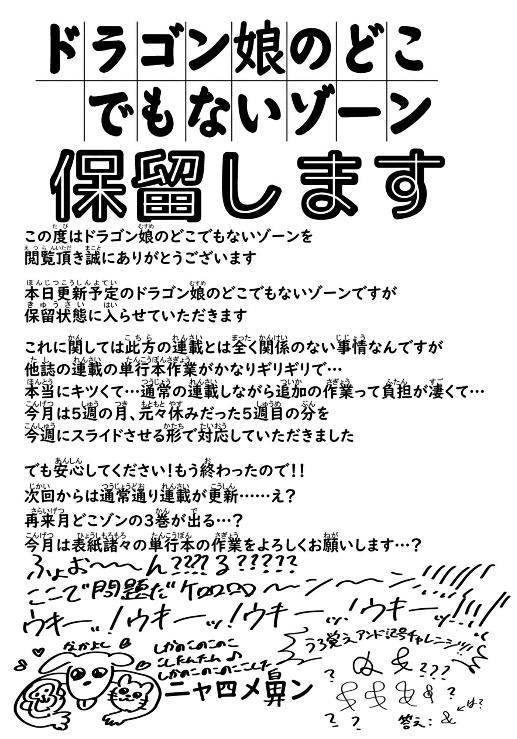 ドラゴン娘のどこ
でもないゾーン
保留します
この度はドラゴン娘のどこでもないゾーンを
閲覧頂き誠にありがとうございます
本日更新予定のドラゴン娘のどこでもないゾーンですが
保留状態に入らせていただきます
これに関しては此方の連載とは全く関係のない事情なんですが
他誌の連載の単行本作業がかなりギリギリで…
本当にキツくて…通常の連載しながら追加の作業って負担が凄くて…
今月は5週の月、元々休みだった5週目の分を
今週にスライドさせる形で対応していただきました
でも安心してください!もう終わったので!!
次回からは通常通り連載が更新……え?
再来月どこゾンの3巻が出る…?
今月は表紙諸々の単行本の作業をよろしくお願いします…?
ふょお〜〜ん????る?????
ここで問題だケロロロ〜ン〜ン!!!!!
ウキーッ!ウキーッ!ウキーッ!ウキーッ!!!!
なかよし
しかのこのこのこ
こしたんたん♪
しかのこのこのここした
ニャロメ鼻ン
うろ覚えアンド記号チャレンジ!!!
???
? ?
答え:&
←は?